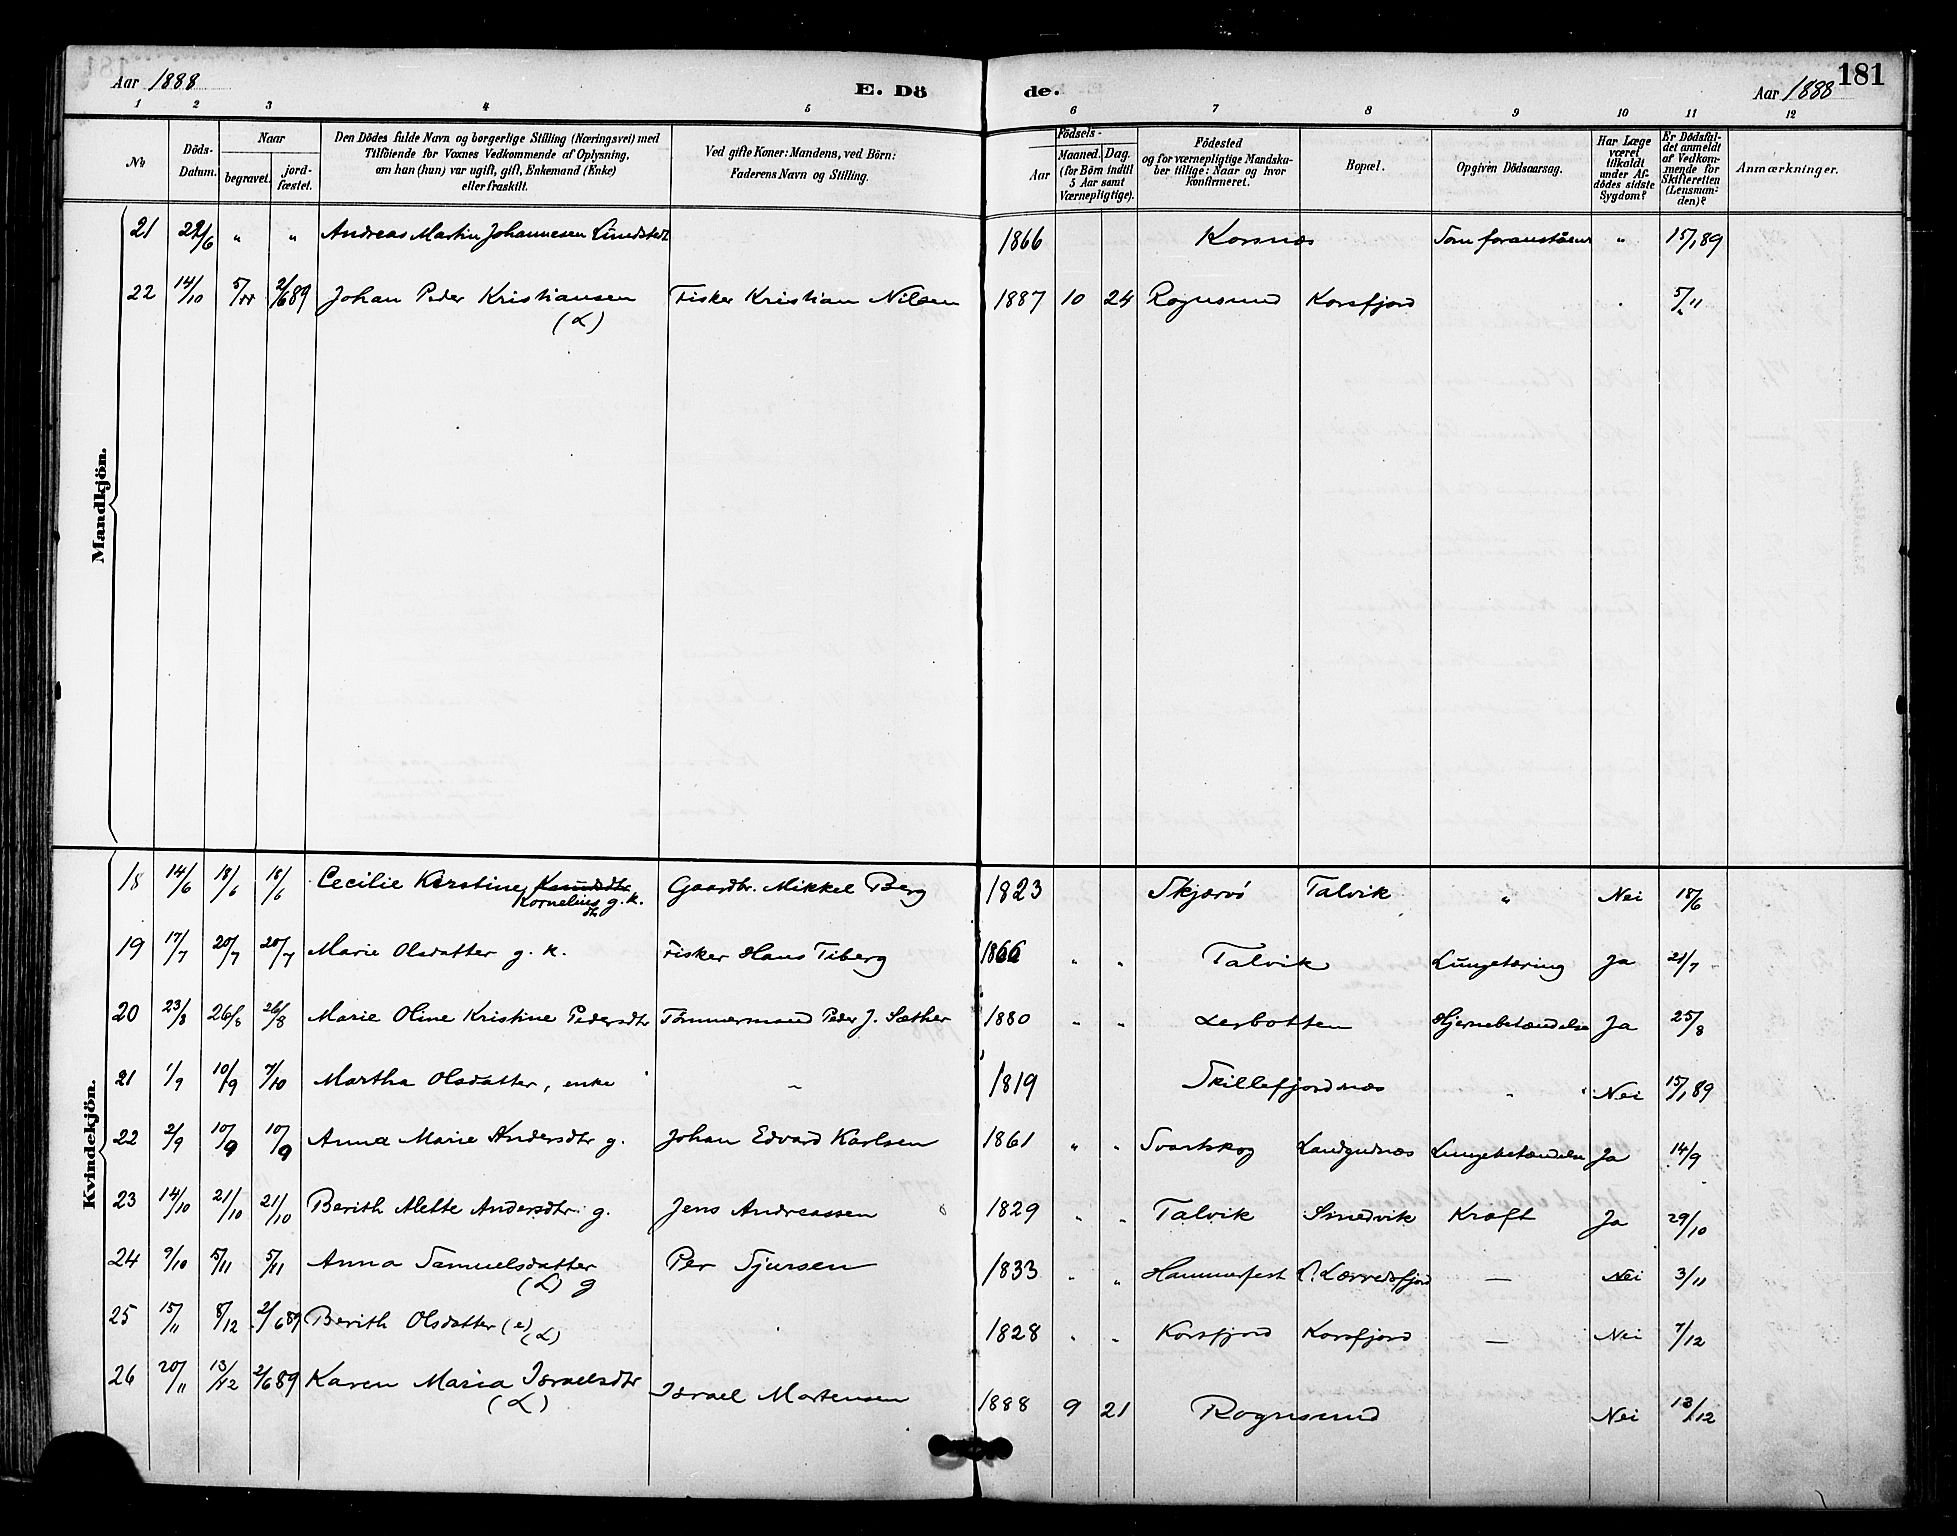 Aar 1888
E. Dö
de.
Aar 1888
181
1 2 3 4 5 6 7 8 9 10 11 12
No
Döds-
Datum.
Naar
begravet.
jord-
fæstet.
Den Dödes fulde Navn og borgerlige Stilling (Næringsvei) med
Tilföiende for Voxnes Vedkommende af Oplysning,
om han (hun) var ugift, gift, Enkemand (Enke)
eller fraskilt.
Ved gifte Koner: Mandens, ved Börn:
Faderens Navn og Stilling.
Födsels-
Aar
Maaned. Dag.
(for Börn indtil
5 Aar samt
Værnepligtige).
Födested
og for værnepligtige Mandska-
ber tillige: Naar og hvor
konfirmeret.
Bopæl.
Opgiven Dödsaarsag.
Har Læge
været
tilkaldt
under Af-
dödes sidste
Sygdom?
Er Dödsfal-
det anmeldt
af Vedkom-
mende for
Skifteretten
(Lensman-
den)?
Anmærkninger.
Mandkjön.
21 22/6 " " Andreas Martin Johannesen Lundstedt 1866 Korsnæs Som foranstående " 15/1 89
22 14/10 5/11 2/6 89 Johan Peder Kristiansen Fisker Kristian Nilsen 1887 10 24 Rognsund Korsfjord 5/11
(L)
Kvindekjön.
18 14/6 18/6 18/6 Cecilie Kerstine Knudsdtr Gaardbr. Mikkel Berg 1823 Skjærvö Talvik " Nei 18/6
Kornelius g. k.
dtr
19 17/7 20/7 20/7 Marie Olsdatter g. k. Fisker Hans Tiberg 1866 " " Talvik Lungetæring Ja 21/7
20 23/8 26/8 26/8 Marie Oline Kristine Pedersdtr Tömmermand Peder J. Sæther 1880 " " Lerbotten Hjernebetændelse Ja 25/8
21 1/9 10/9 7/10 Martha Olsdatter, enke " 1819 Skillefjordnæs " Nei 15/1 89
22 2/9 10/9 10/9 Anna Marie Andersdtr g. Johan Edvard Karlsen 1861 " " Svartskog Lungebetændelse Ja 14/9
23 14/10 21/10 21/10 Berith Mette Andersdtr g. Jens Andreassen 1829 " " Talvik Smedvik Kræft Ja 29/10
24 9/10 5/11 5/11 Anna Samuelsdatter Per Sjursen 1833 " " Hammerfest L. Lærredsfjord — Nei 3/11
(L) g
25 15/11 8/12 2/6 89 Berith Olsdatter (e) 1828 " " Korsfjord Korsfjord — Nei 7/12
(L)
26 20/11 13/12 2/6 89 Karen Maria Israelsdtr Israel Mortensen 1888 9 21 Rognsund Nei 13/12
(L)